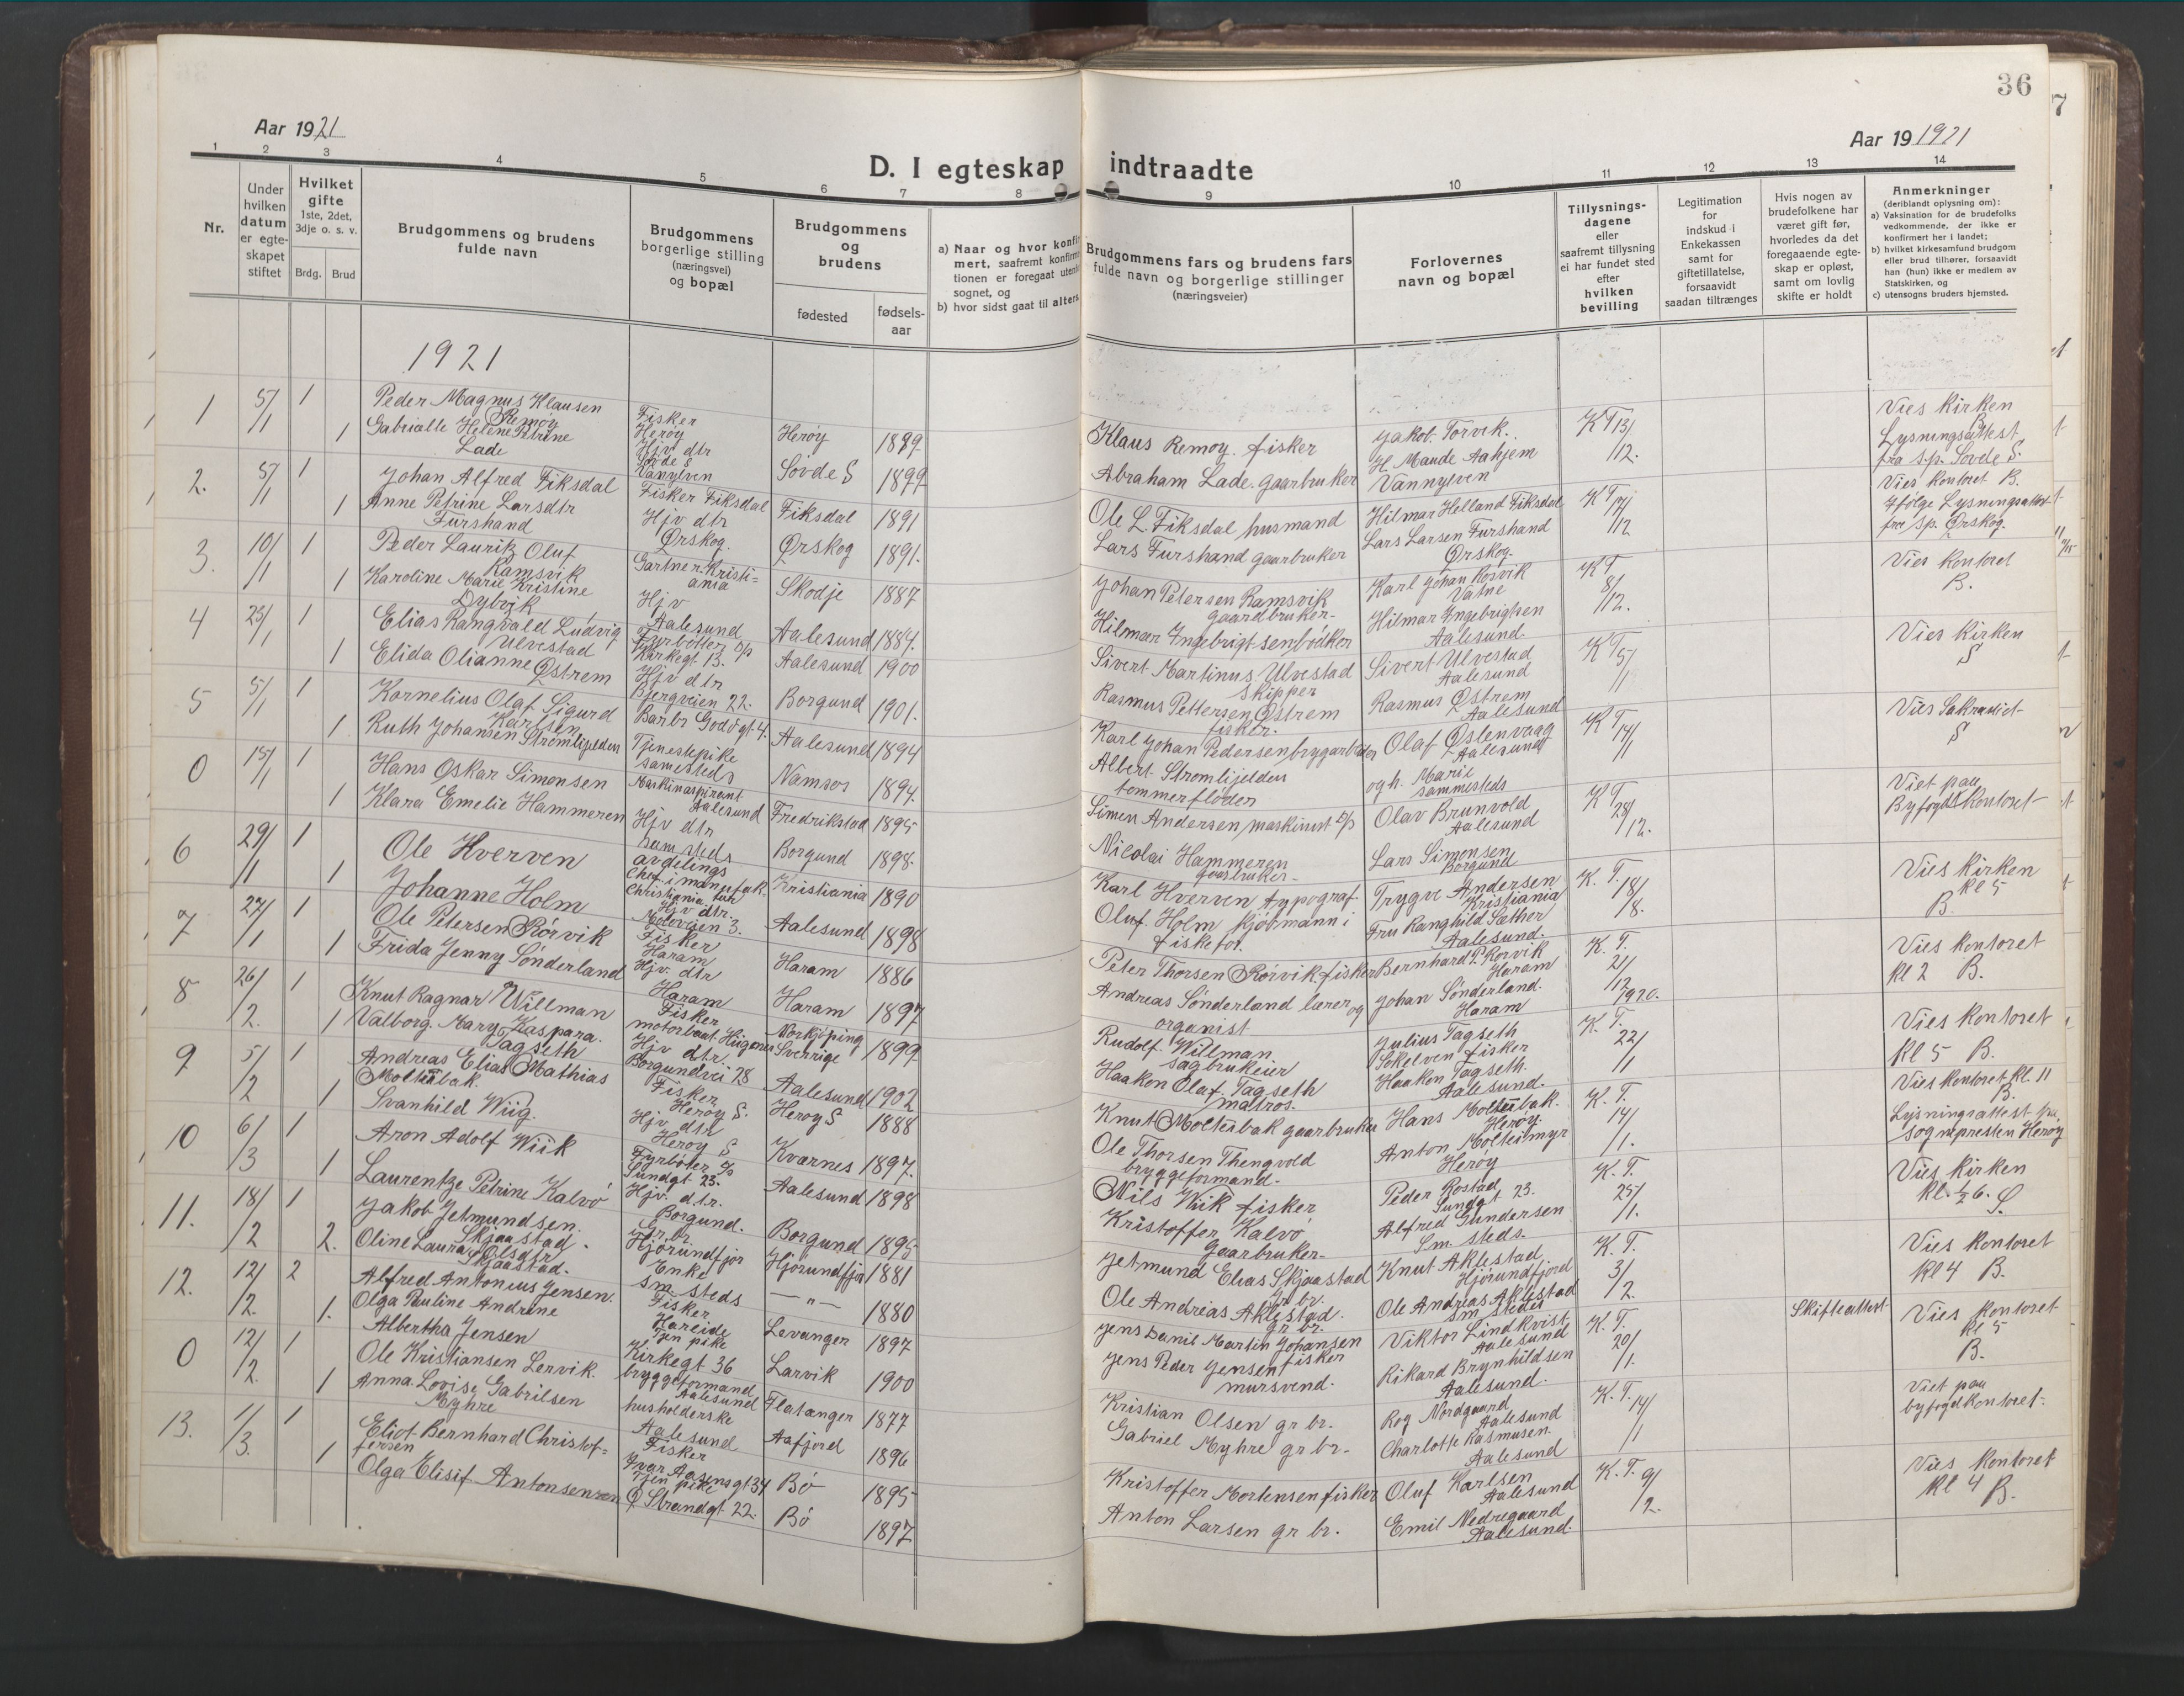 36
Aar 1921
Aar 19 1921
D. I egteskap indtraadte
1 2 3 4 5 6 7 8 9 10 11 12 13 14
Nr.
Under
hvilken
datum
er egte-
skapet
stiftet
Hvilket
gifte
1ste, 2det,
3dje o. s. v.
Brdg. Brud
Brudgommens og brudens
fulde navn
Brudgommens
borgerlige stilling
(næringsvei)
og bopæl
Brudgommens
og
brudens
fødested
fødsels-
aar
a) Naar og hvor konfir
mert, saafremt konfirma
tionen er foregaat utenfo
sognet, og
b) hvor sidst gaat til alters
Brudgommens fars og brudens fars
fulde navn og borgerlige stillinger
(næringsveier)
Forlovernes
navn og bopæl
Tillysnings-
dagene
eller
saafremt tillysning
ei har fundet sted
efter
hvilken
bevilling
Legitimation
for
indskud i
Enkekassen
samt for
giftetillatelse,
forsaavidt
saadan tiltrænges
Hvis nogen av
brudefolkene har
været gift før,
hvorledes da det
foregaaende egte-
skap er opløst,
samt om lovlig
skifte er holdt
Anmerkninger
(deriblandt oplysning om):
a) Vaksination for de brudefolks
vedkommende, der ikke er
konfirmert her i landet;
b) hvilket kirkesamfund brudgom
eller brud tilhører, forsaavidt
han (hun) ikke er medlem av
Statskirken, og
c) utensogns bruders hjemsted.
1921
1 5/1 1
Peder Magnus Klausen
Remøy
Fisker
Herøy
Herøy 1899
Klaus Remøy. fisker
Jakob Torvik.
K T 13/12.
Vies kirken
B
1
Gabrialle Helene Petrine
Lade
Hjv dtr
Søvde S
Vanylven
Søvde S 1899
Abraham Lade. gaarbruker
H. Maude Aahjem
Vannylven
Lysningsattest
fra s.p. Søvde S.
2. 5/1 1
Johan Alfred Fiksdal
Fisker Fiksdal
Fiksdal 1891
Ole L. Fiksdal husmand
Hilmar Helland Fiksdal
K T 17/12
Vies kontoret B.
1
Anne Petrine Larsdtr
Furshand
Hjv dtr
Ørskog.
Ørskog 1891.
Lars Furshand gaarbruker
Lars Larsen Furshand
Ørskog.
Ifølge Lysningsattest
fra sp. Ørskog.
3. 10/1 1
Peder Laurik Oluf
Ramsvik
Gartner Kristi=
ania
Skodje 1887
Johan Petersen Ramsvik
gaardbruker-
Karl Johan Rosvik
Vatne
K T 8/12.
Vies kontoret
B.
1
Karoline Marie Kristine
Dybvik
Hjv
Aalesund
Aalesund 1884.
Hilmar Ingebrigtsen bødker
Hilmar Ingebrigtsen
Aalesund.
4 25/1 1
Elias Rangvald Ludvig
Ulvestad
Fyrbøtter
Kirkegt. 13.
Aalesund 1900
Sivert Martinus Ulvestad
Skipper
Sivert Ulvestad
Aalesund
K T 5/1
Vies kirken
S
1
Elida Olianne Østrem
Hjv dtr
Bjergveien 22.
Borgund 1901.
Rasmus Pettersen Østrem
fisker.
Rasmus Østrem
Aalesund
5 5/1 1
Kornelius Olaf Sigurd
Karlsen
Barbr Godøgt. 4.
Aalesund 1894
Karl Johan Pedersen brygarbeider
Olaf Østenvaag
Aalesund
K T 14/1
Vies Sakrastiet
S
1
Ruth Johansen Strømlijelden
Tjenestepike
samesteds
Namsos 1894.
Albert Strømlijelden
tømmerfløder
og h. Marie
sammesteds
0 15/1
Hans Oskar Simonsen
Maskinaspirant
Aalesund
Fredrikstad 1895
Simen Andersen maskinist
Olav Brunvold
Aalesund
K T 28/12.
Viet paa
Byfogdkontoret
1
Klara Emelie Hammeren
Hjv dtr
sam steds
Borgund 1898.
Nicolai Hammeren
gaarbruker-
Lars Simonsen
Borgund
6 29/1 1
Ole Hverven
avdelings
chef i manufak.
Christiania
Kristiania 1890
Karl Hverven typograf
Trygve Andersen
Kristiania
K. T. 18/8.
Vies kirken
kl 5
B.
1
Johanne Holm
Hjv dtr.
Moloveien 3.
Aalesund 1898
Oluf Holm kjøbmann i
fiskefor.
Fru Ranghild Sæther
Aalesund.
7 27/1 1
Ole Petersen Rørvik
Fisker
Haram
Haram 1886
Peter Thorsen Rørvik. fisker
Bernhard P. Rørvik
Haram
K. T. 21/12 1920.
Vies kontoret
kl 2 B.
1
Frida Jenny Sønderland
Hjv. dtr
Haram
Haram 1897
Andreas Sønderland lærer og
organist
Johan Sønderland.
Haram
8 26/2. 1
Knut Ragnar Willman
Fisker
motorbaat Haganes
Norkjøping
Sverrige 1899
Rudolf Willman
sagbrukeier
Julius Tagseth
Søkelven fisker
K. T. 22/1
Vies kontoret
kl 5 B.
1
Valborg. Mary Kaspara.
Tagseth
Hjv dtr.
Borgundvei 28
Aalesund 1902
Haakon Olaf. Tagseth
matros.
Haakon Tagseth.
Aalesund.
9 5/2 1
Andreas Elias Mathias
Moltubak.
Fisker
Herøy S.
Herøy S 1888
Knut Moltubak gaarbruker
Hans Moltubak.
Herøy.
K. T. 14/1.
Vies kontoret kl. 11
B.
1
Svanhild Wiig.
Hjv dtr
Herøy S
Kvernes 1897.
Ole Thorsen Thengvold
bryggeformand.
Anton Moltumyr
Herøy
Lysningsattest fra
sognepresten Herøy
10 6/3 1
Aron Adolf Wiik
Fyrbøter
Sundgt 23.
Aalesund 1898
Nils Wiik fisker
Peder Rostad
Sundgt 23.
K. T. 25/1.
Vies kirken
kl. ½6. S.
1
Laurentze Petrine Kalvø
Hjv. dtr.
Borgund.
Borgund 1895
Kristoffer Kalvø
Gaarbruker-
Alfred Gundersen
Sm. steds.
11. 18/2 1
Jakob Jetmundsen.
Skjaastad.
Gr. br.
Hjørundfjor
Hjørundfjor 1881
Jetmund Elias Skjaastad
gr br.
Knut Aklestad
Hjørundfjord
K. T. 3/2.
Vies kontoret
kl 4 B.
2.
Oline Laura Olsdtr
Skjaastad.
Enke
Sm. steds
— „ — 1880
Ole Andreas Aklestad.
gr br.
Ole Andreas Aklestad
sm steds
Skifteattest
12. 12/2. 2
Alfred Antonius Jensen.
Fisker
Hareide
Levanger 1897
Jens Danil Martin Johansen
fisker
Viktor Lindkvist
Aalesund
K. T. 20/1.
Vies kontoret
kl 5
B.
1.
Olga Pauline Andrine
Albertha Jensen
Tjen pike
Kirkegt. 36
Larvik 1900
Jens Peder Jensen
mursvend.
Rikard Brynhildsen
Aalesund.
0 12/2. 1
Ole Kristiansen Lervik.
bryggeformand
Aalesund
Flatanger 1877
Kristian Olsen gr br.
Rog Nordgaard
Aalesund
K. T. 14/1
Viet paa
byfogdkontoret.
1
Anna Lovise Gabrilsen
Myhre
husholderske
Aalesund
Aafjord 1896
Gabriel Myhre gr br-
Charlotte Rasmusen.
Aalesund
13. 1/3. 1
Eliot Bernhard Christof=
fersen
Fisker
Ivar Aasensgt 34
Bø 1895
Kristoffer Mortensen fisker
Oluf Karlsen
Aalesund
K. T. 9/2.
Vies kontoret
kl 4 B.
1
Olga Elisif Antonsen
Tjen pike
Ø Strandgt. 22.
Bø 1897
Anton Larsen gr br.
Emil Nedregaard
Aalesund.